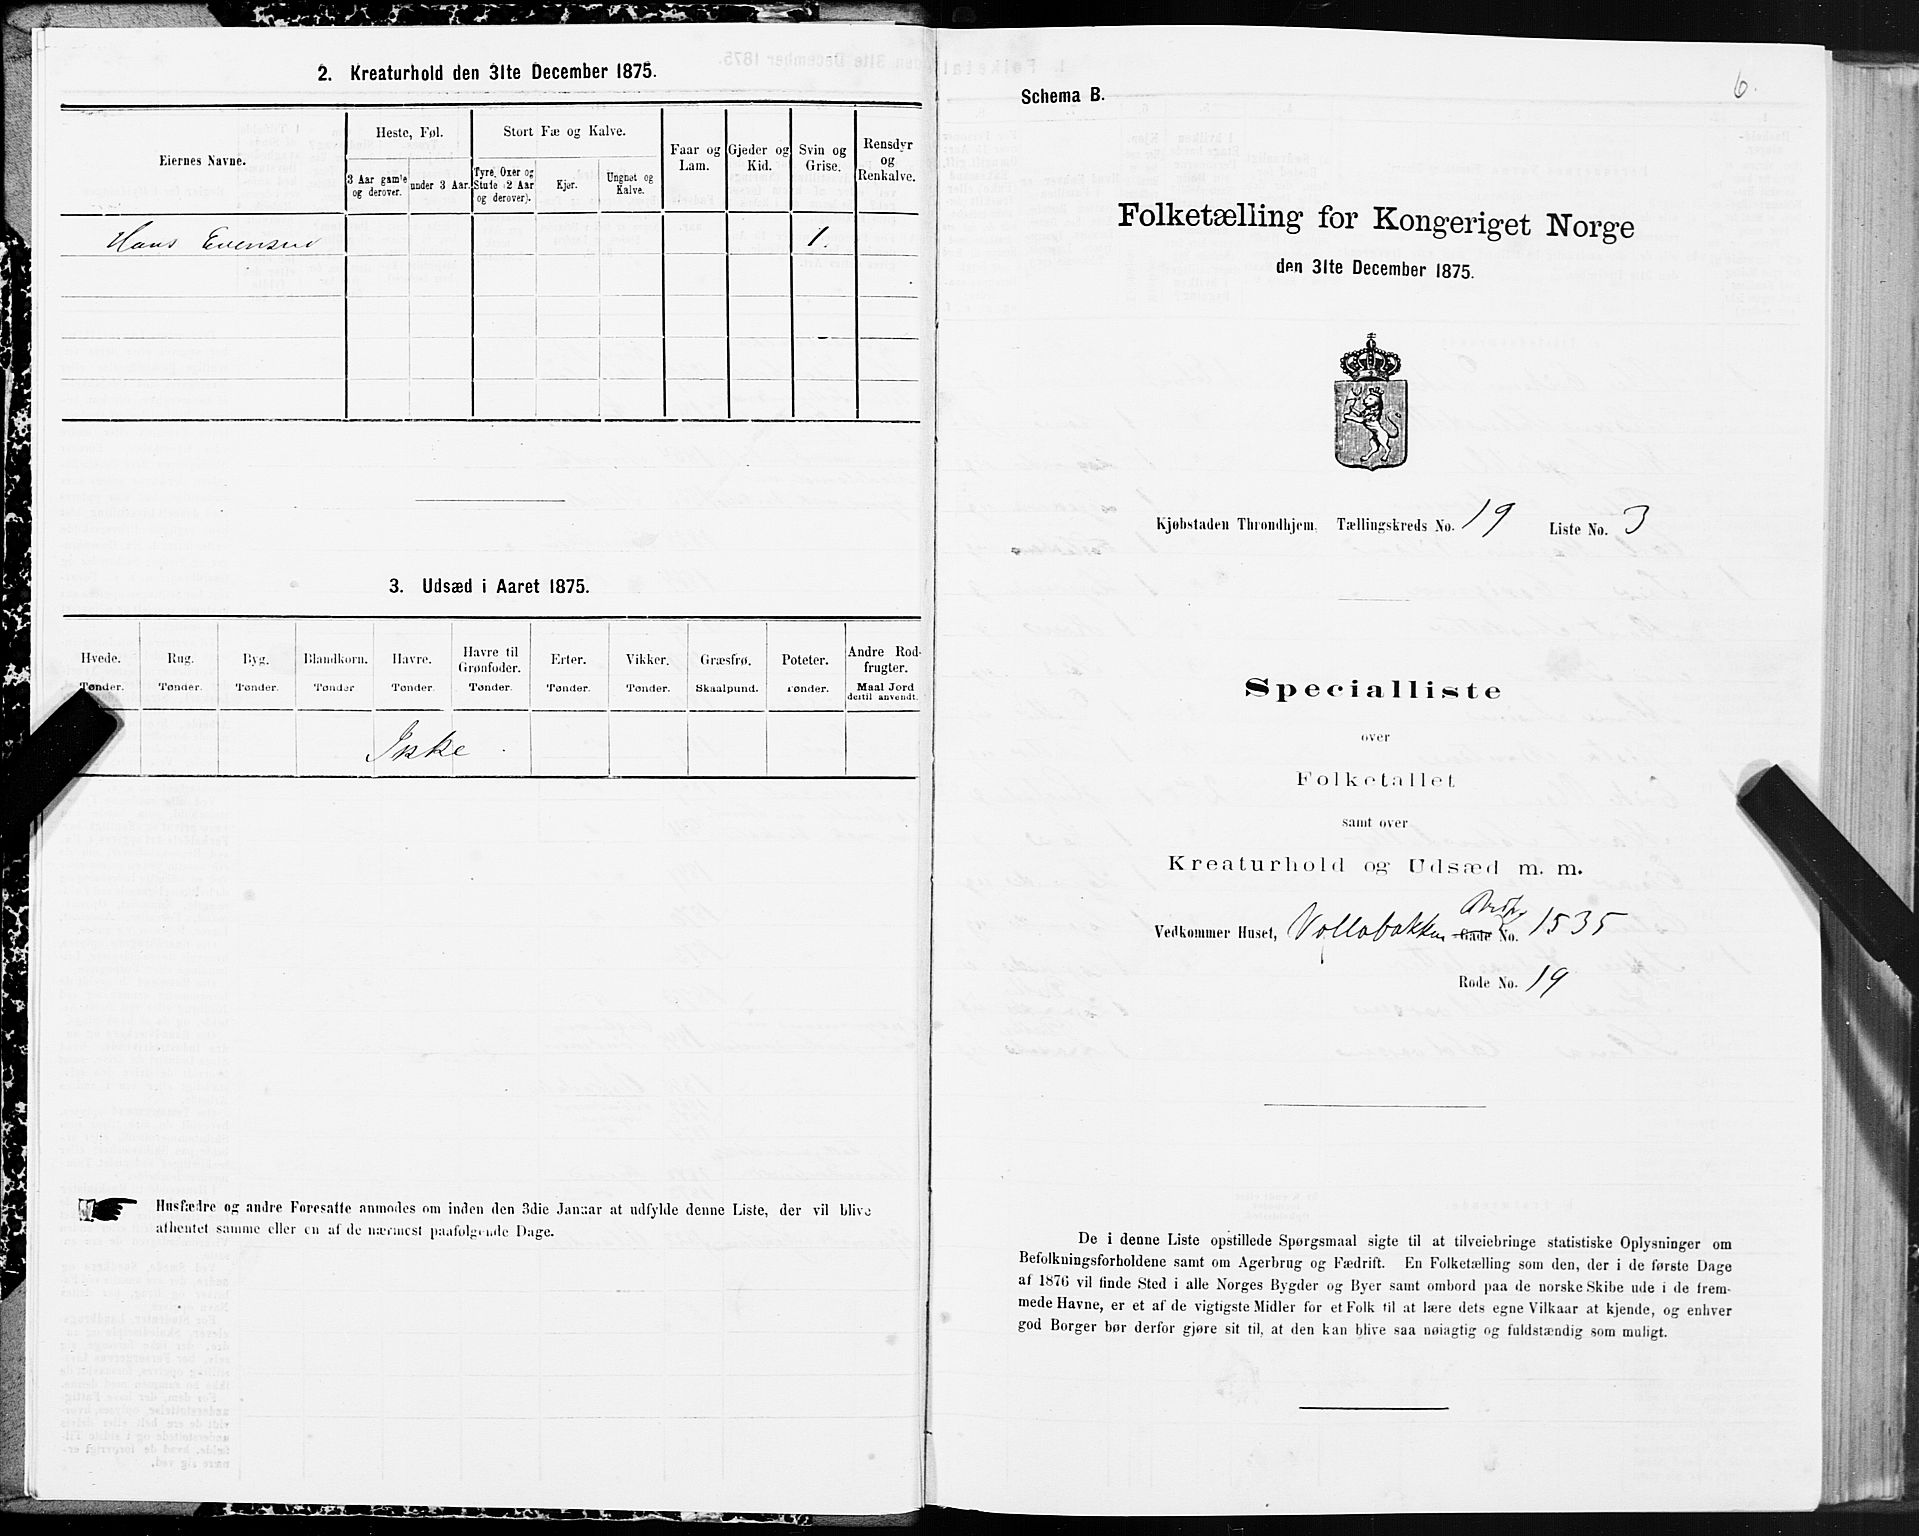 2. Kreaturhold den 31te December 1875.
Eiernes Navne.
Heste, Føl.
Stort Fæ og Kalve.
Faar og Lam.
Gjeder og Kid.
Svin og Grise.
Rensdyr og Renkalve.
3 Aar gamle og derover.
under 3 Aar.
Tyre, Oxer og Stude (2 Aar og derover).
Kjør.
Ungnøt og Kalve.
Hans Evensen 1.
3. Udsæd i Aaret 1875.
Hvede. Rug. Byg. Blandkorn. Havre. Havre til Grønfoder. Erter. Vikker. Græsfrø. Poteter. Andre Rodfrugter.
Tønder. Tønder. Tønder. Tønder Tønder. Tønder. Tønder. Tønder. Skaalpund. Tønder. Maal Jord dertil anvendt.
Ikke
Husfædre og andre Foresatte anmodes om inden den 3die Januar at udfylde denne Liste, der vil blive
afhentet samme eller en af de nærmest paafølgende Dage.
6.
Schema B.
Folketælling for Kongeriget Norge
den 31te December 1875.
Kjøbstaden Throndhjem. Tællingskreds No. 19 Liste No. 3
Specialliste
over
Folketallet
samt over
Kreaturhold og Udsæd m. m.
Vedkommer Huset, Vollabakken Gade No. 1535
Rode No. 19
De i denne Liste opstillede Spørgsmaal sigte til at tilveiebringe statistiske Oplysninger om
Befolkningsforholdene samt om Agerbrug og Fædrift. En Folketælling som den, der i de første Dage
af 1876 vil finde Sted i alle Norges Bygder og Byer samt ombord paa de norske Skibe ude i de frem-
mede Havne, er et af de vigtigste Midler for et Folk til at lære dets egne Vilkaar at kjende, og enhver
god Borger bør derfor gjøre sit til, at den kan blive saa nøiagtig og fuldstændig som muligt.